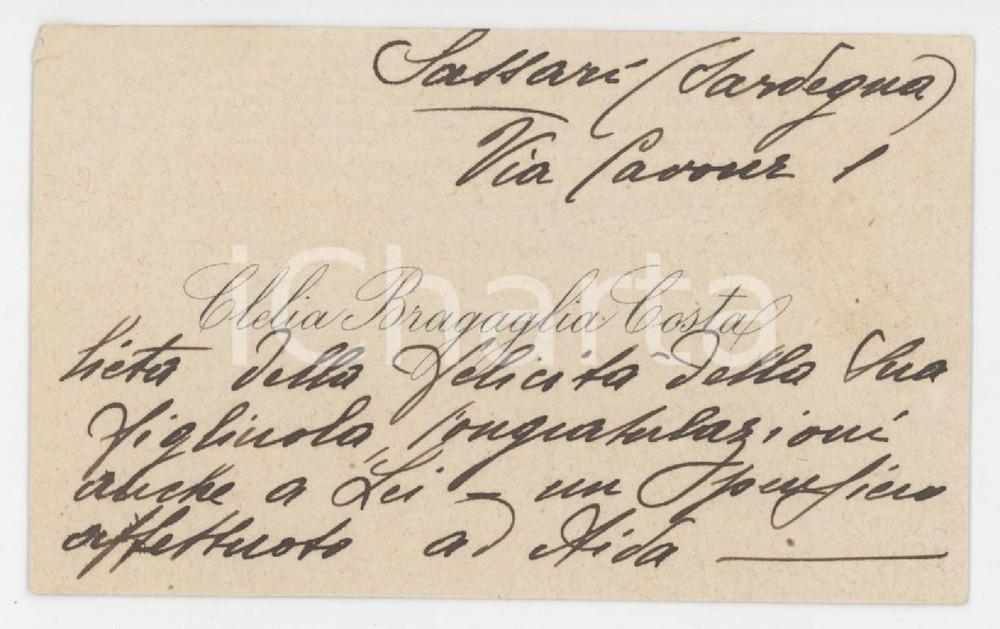 Sassari (Sardegna)
Via Cavour 1
iCharta
Clelia Bragaglia Costa
lieta della felicità della Sua
figliuola, congratulazioni
anche a Lei – un pensiero
affettuoso ad Aida